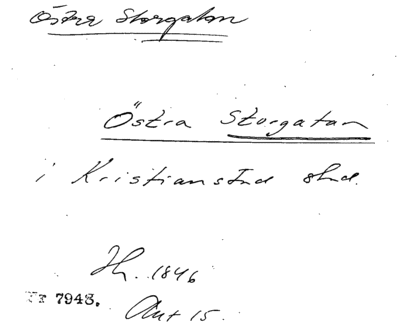 Östra Storgatan
Östra Storgatan
i Kristianstad stad.
Th. 1846
Nr 7943.
Ant 15.